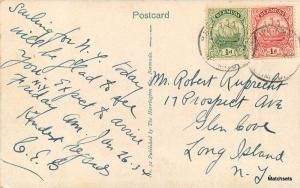 Postcard
BERMUDA
BERMUDA
Sailing for N.Y. today
will be glad to see
you. Expect to arrive
Friday Am. Jan 26.
Kindest regards
C.E.B
Mr. Robert Ruprecht
17 Prospect Ave
Glen Cove
Long Island
N-Y
Published by The Harrington Bermuda.
Matchsets